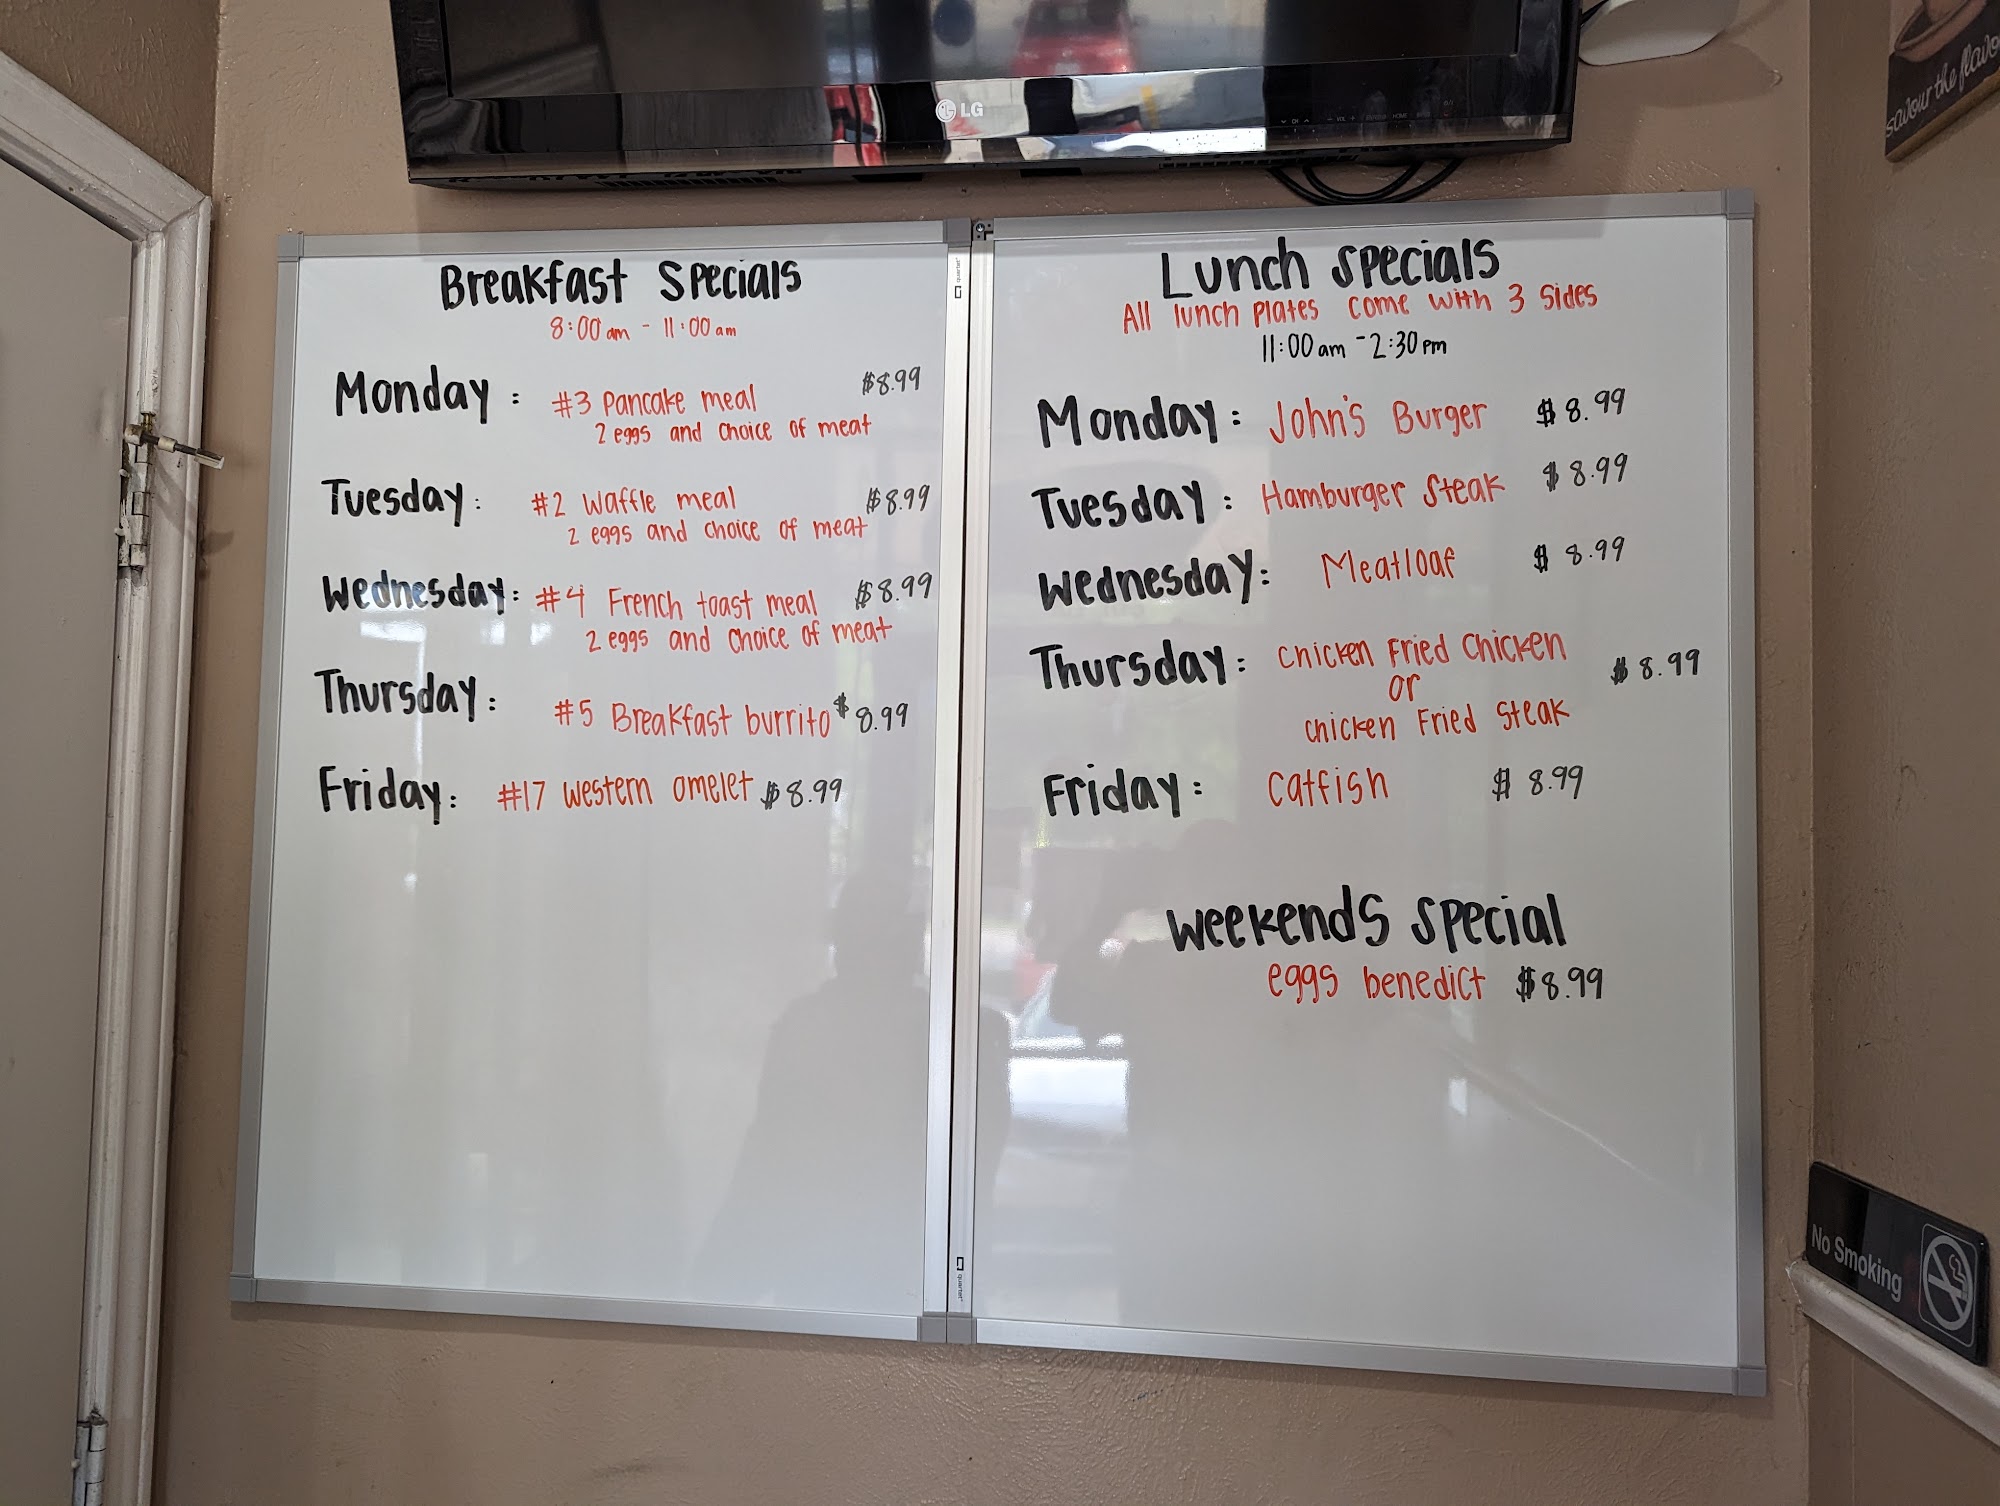 LG
savour the flavo
Breakfast Specials
8:00 am - 11:00 am
Monday : #3 Pancake meal $8.99
2 eggs and choice of meat
Tuesday : #2 Waffle meal $8.99
2 eggs and choice of meat
Wednesday : #4 French toast meal $8.99
2 eggs and choice of meat
Thursday : #5 Breakfast burrito $8.99
Friday : #17 Western omelet $8.99
Lunch Specials
All lunch plates come with 3 sides
11:00 am - 2:30 pm
Monday : John's Burger $8.99
Tuesday : Hamburger Steak $8.99
Wednesday : Meatloaf $8.99
Thursday : Chicken Fried Chicken $8.99
or
Chicken Fried Steak
Friday : Catfish $8.99
Weekends Special
eggs benedict $8.99
quartet
quartet
No Smoking